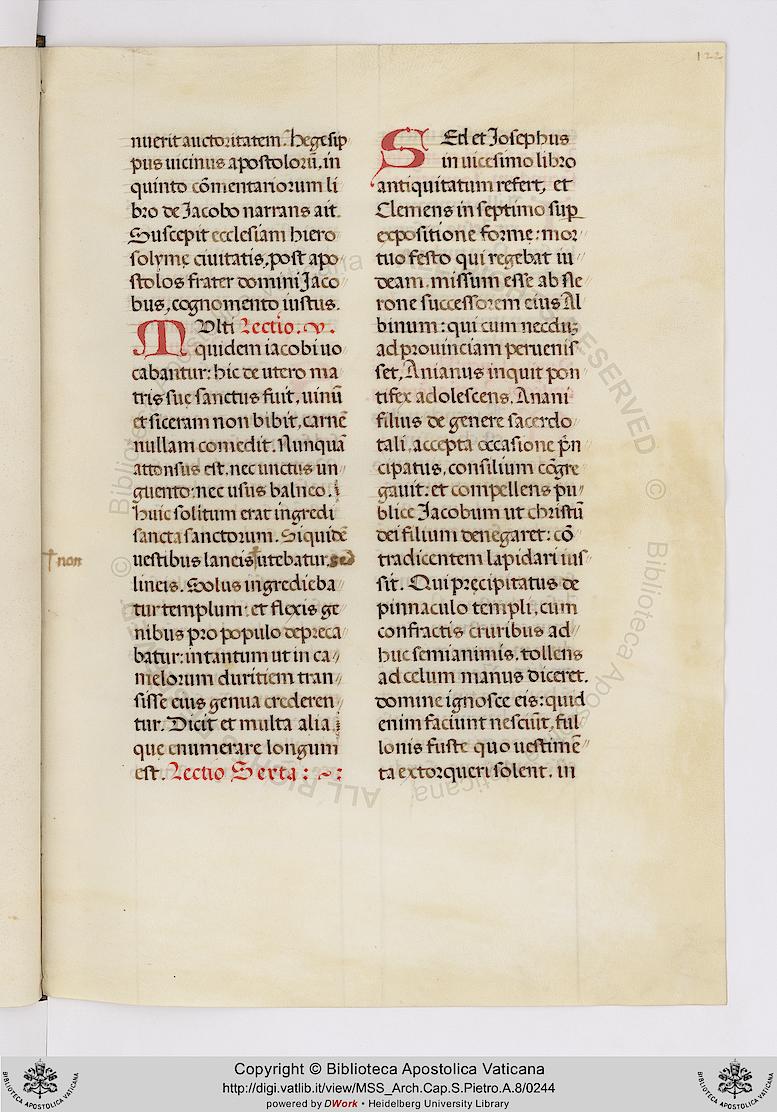 122
nuerit auctoritatem. Hegesip
pus uicinus apostolorũ, in
quinto cõmentariorum li
bro de Jacobo narrans ait.
Suscepit ecclesiam hiero
solymę ciuitatis, post apo
stolos frater domini Jaco
bus, cognomento iustus.
MUlti Lectio. v.
quidem iacobi uo
cabantur: hic de utero ma
tris suę sanctus fuit, uinũ
et siceram non bibit, carnẽ
nullam comedit. Nunquã
attonsus est. nec unctus un
guento: nec usus balneo.
Huic solitum erat ingredi
sancta sanctorum. Siquidẽ
uestibus laneis † utebatur. sed
† non
lineis. Solus ingredieba
tur templum: et flexis ge
nibus pro populo depreca
batur: in tantum ut in ca
melorum duritiem tran
sisse eius genua crederen
tur. Dicit et multa alia,
que enumerare longum
est. Lectio Sexta: ~:
SEd et Josephus
in uicesimo libro
antiquitatum refert, et
Clemens in septimo sup
expositione forme: mor
tuo festo qui regebat iu
deam. missum esse ab Ne
rone successorem eius Al
binum: qui cum necduʒ
ad prouinciam peruenis
set, Ananus inquit pon
tifex adolescens, Anani
filius de genere sacerdo
tali, accepta occasione p̃n
cipatus, consilium cõgre
gauit: et compellens pu
blice Jacobum ut christũ
dei filium denegaret: cõ
tradicentem lapidari ius
sit. Qui pręcipitatus de
pinnaculo templi, cum
confractis cruribus ad
huc semianimis. tollens
ad celum manus diceret.
domine ignosce eis: quid
enim faciunt nesciũt, ful
lonis fuste quo uestimẽ
ta extorqueri solent. in
Copyright © Biblioteca Apostolica Vaticana
http://digi.vatlib.it/view/MSS_Arch.Cap.S.Pietro.A.8/0244
powered by DWork • Heidelberg University Library